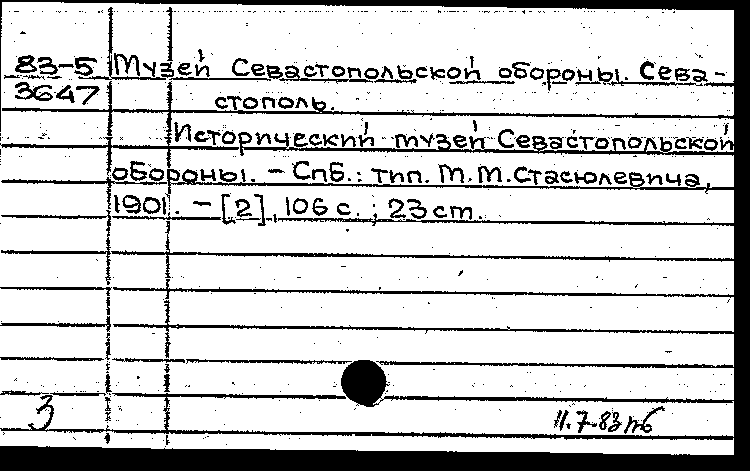 83-5 Музей Севастопольской обороны. Сева-
3647 стополь.
Исторический музей Севастопольской
обороны. - Спб.: тип. М.М.Стасюлевича,
1901. - [2], 106 с. ; 23 см.
3 11.7.83